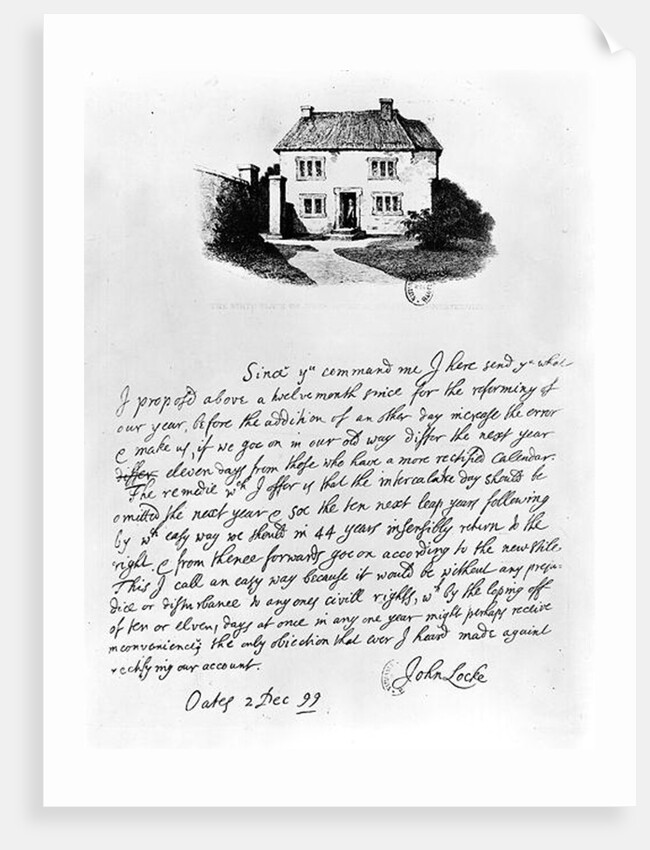 Since yu command me I here send yu what
I propos'd above a twelvemonth since for the reforming of
our year, before the addition of an other day increase the error
& make us, if we goe on in our old way differ the next year
differ eleven days from those who have a more rectified Calendar.
The remedie wch I offer is that the intercalate day should be
omitted the next year & soe the ten next leap years following
by wch easy way we should in 44 years insensibly return to the
right & from thence forwards goe on according to the new stile
This I call an easy way because it would be without any preju-
dice or disturbance to any ones civill rights, wch by the loping off
of ten or eleven, days at once in any one year might perhaps receive
inconvenience, the only obiection that ever I heard made against
rectifying our account.
John Locke
Oates 2 Dec 99